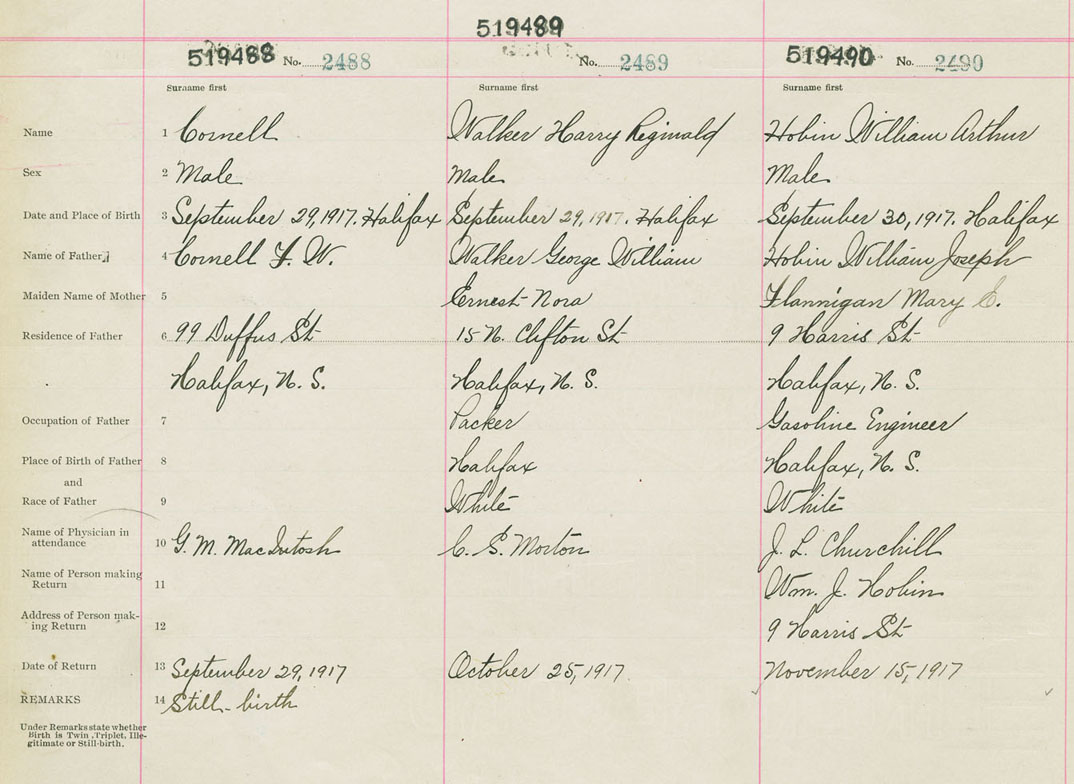 519489
519488 No. 2488 No. 2489 519490 No. 2490
Surname first Surname first Surname first
Name 1 Cornell Walker Harry Reginald Hobin William Arthur
Sex 2 Male Male Male
Date and Place of Birth 3 September 29, 1917. Halifax September 29, 1917. Halifax September 30, 1917. Halifax
Name of Father 4 Cornell F. W. Walker George William Hobin William Joseph
Maiden Name of Mother 5 Ernest Nora Flannigan Mary E.
Residence of Father 6 99 Duffus St 15 N. Clifton St 9 Harris St
Halifax, N. S. Halifax, N. S. Halifax, N. S.
Occupation of Father 7 Packer Gasoline Engineer
Place of Birth of Father 8 Halifax Halifax, N. S.
and
Race of Father 9 White White
Name of Physician in
attendance 10 G. M. MacIntosh C. S. Morton J. L. Churchill
Name of Person making
Return 11 Wm. J. Hobin
Address of Person mak-
ing Return 12 9 Harris St
Date of Return 13 September 29, 1917 October 25, 1917 November 15, 1917
REMARKS 14 Still-birth
Under Remarks state whether
Birth is Twin, Triplet, Ille-
gitimate or Still-birth.